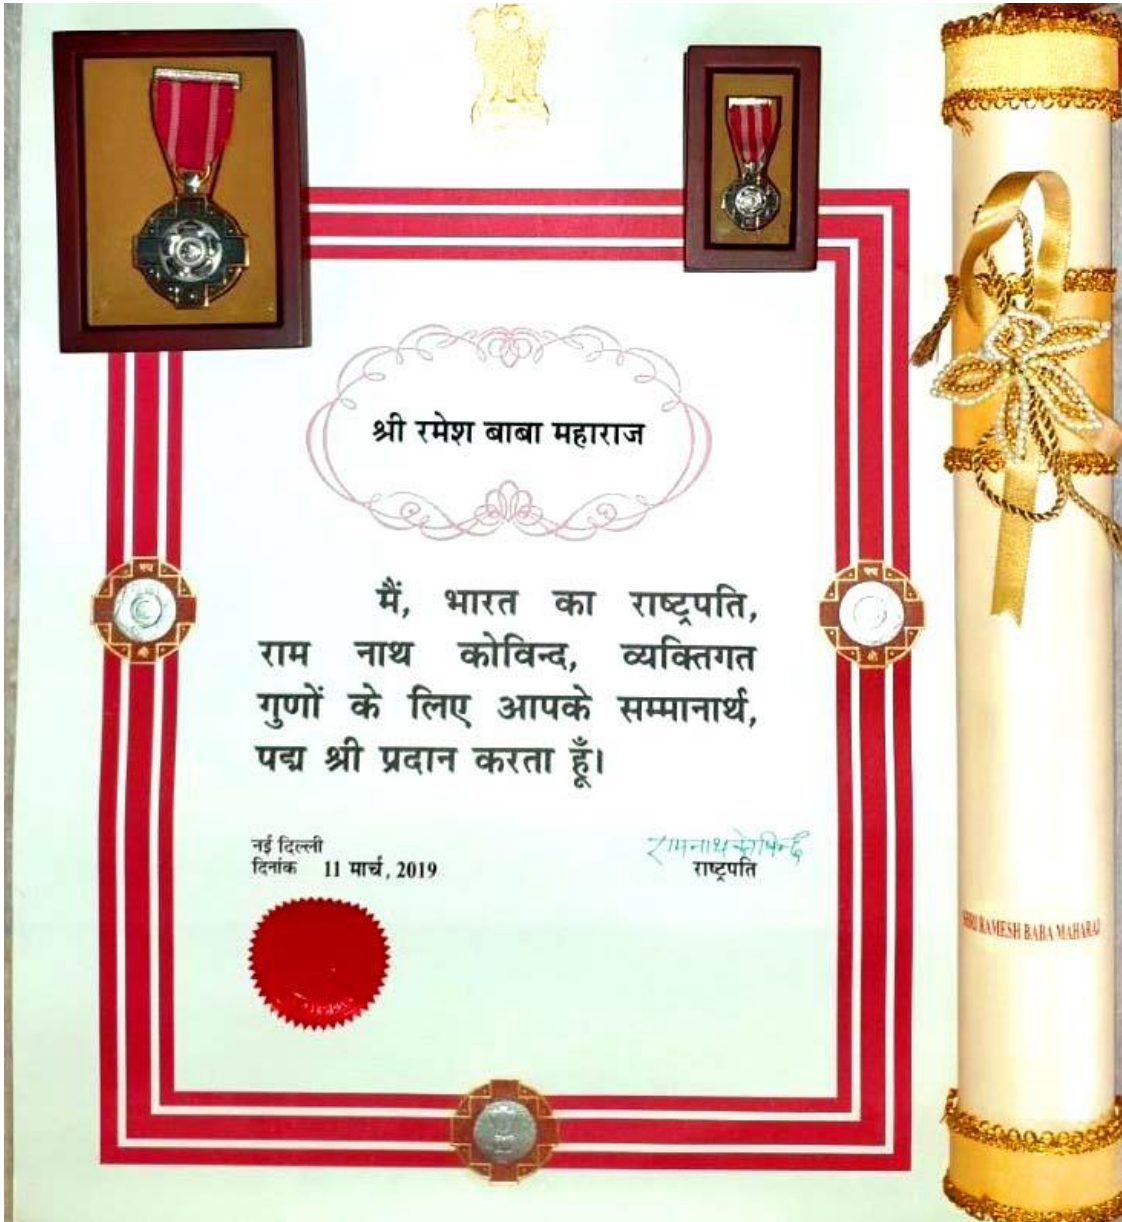 श्री रमेश बाबा महाराज
मैं, भारत का राष्ट्रपति,
राम नाथ कोविन्द, व्यक्तिगत
गुणों के लिए आपके सम्मानार्थ,
पद्म श्री प्रदान करता हूँ।
नई दिल्ली
दिनांक 11 मार्च, 2019
रामनाथ कोविन्द
राष्ट्रपति
पद्म
श्री
पद्म
श्री
SHRI RAMESH BABA MAHARAJ